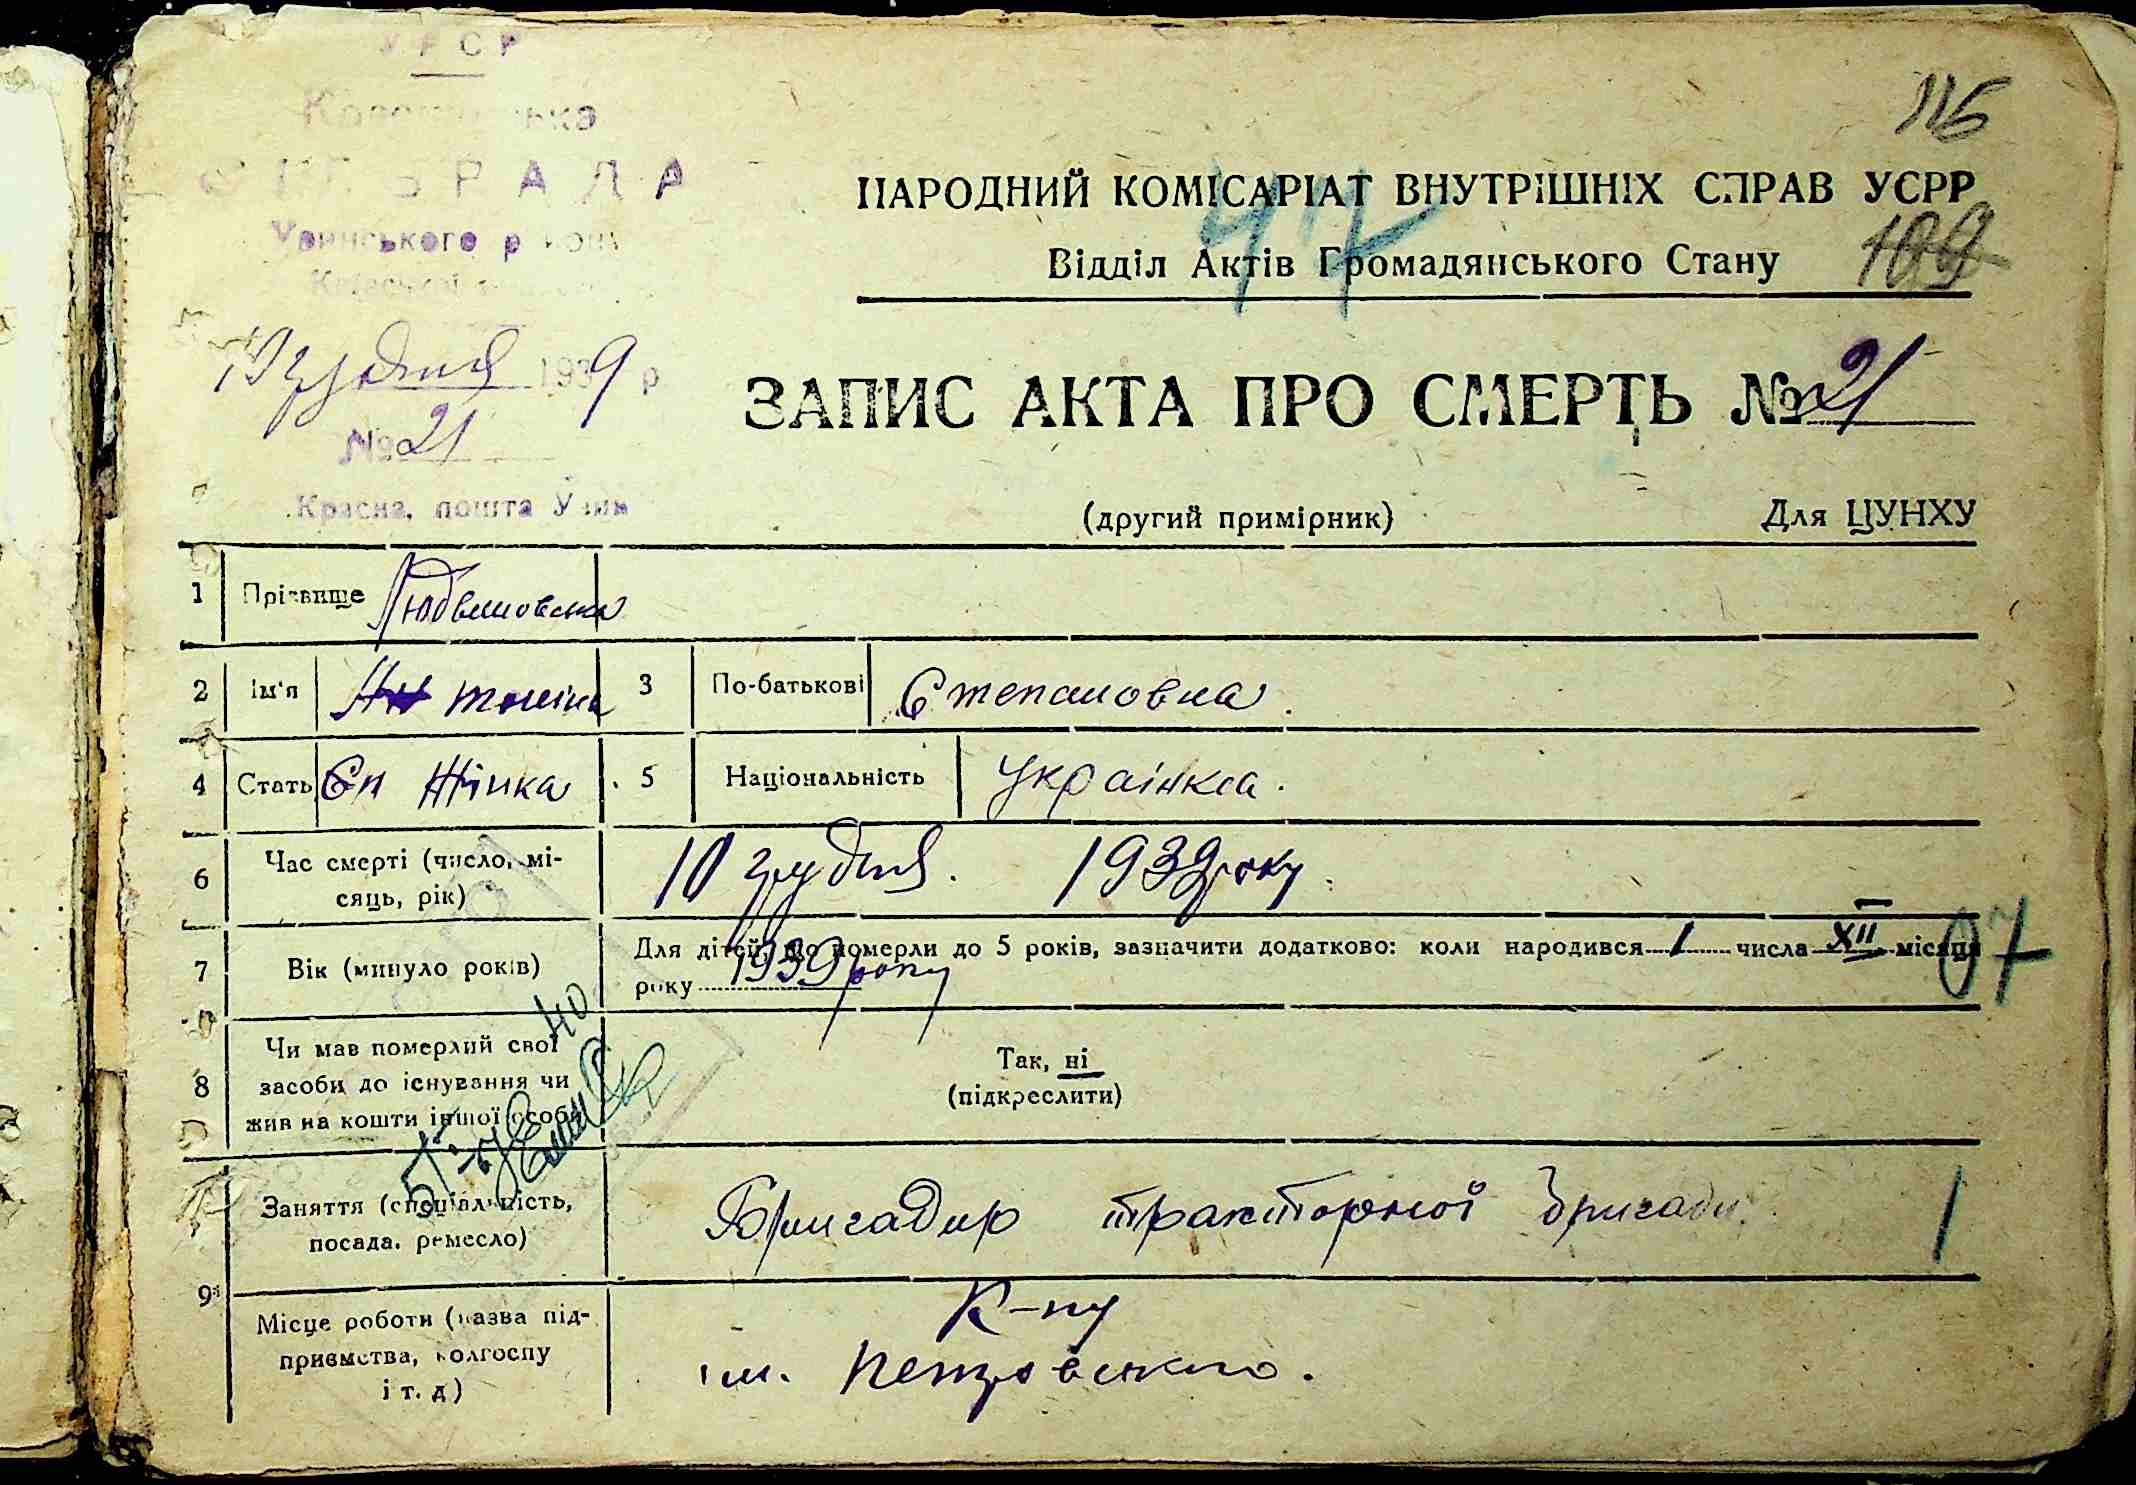 УРСР
РАДА
116
НАРОДНИЙ КОМІСАРІАТ ВНУТРІШНІХ СПРАВ УСРР
47
Відділ Актів Громадянського Стану 109
грудня 1939 р
№ 21
ЗАПИС АКТА ПРО СМЕРТЬ № 21
Красна, пошта Узин
(другий примірник) Для ЦУНХУ
1 Прізвище
2 Ім'я Антоніна 3 По-батькові Степановна.
4 Стать Жінка 5 Національність Українка.
6 Час смерті (число, мі-
сяць, рік) 10 грудня. 1939 року.
7 Вік (минуло років) Для дітей, що померли до 5 років, зазначити додатково: коли народився 1 числа XII місяця
року 1939 року
07
8 Чи мав померлий свої
засоби до існування чи
жив на кошти іншої особи
Так, ні
(підкреслити)
9 Заняття (спеціальність,
посада, ремесло) Бригадир тракторної бригади. 1
Місце роботи (назва під-
приємства, колгоспу
і т. д) К-пу
ім. Петровського.